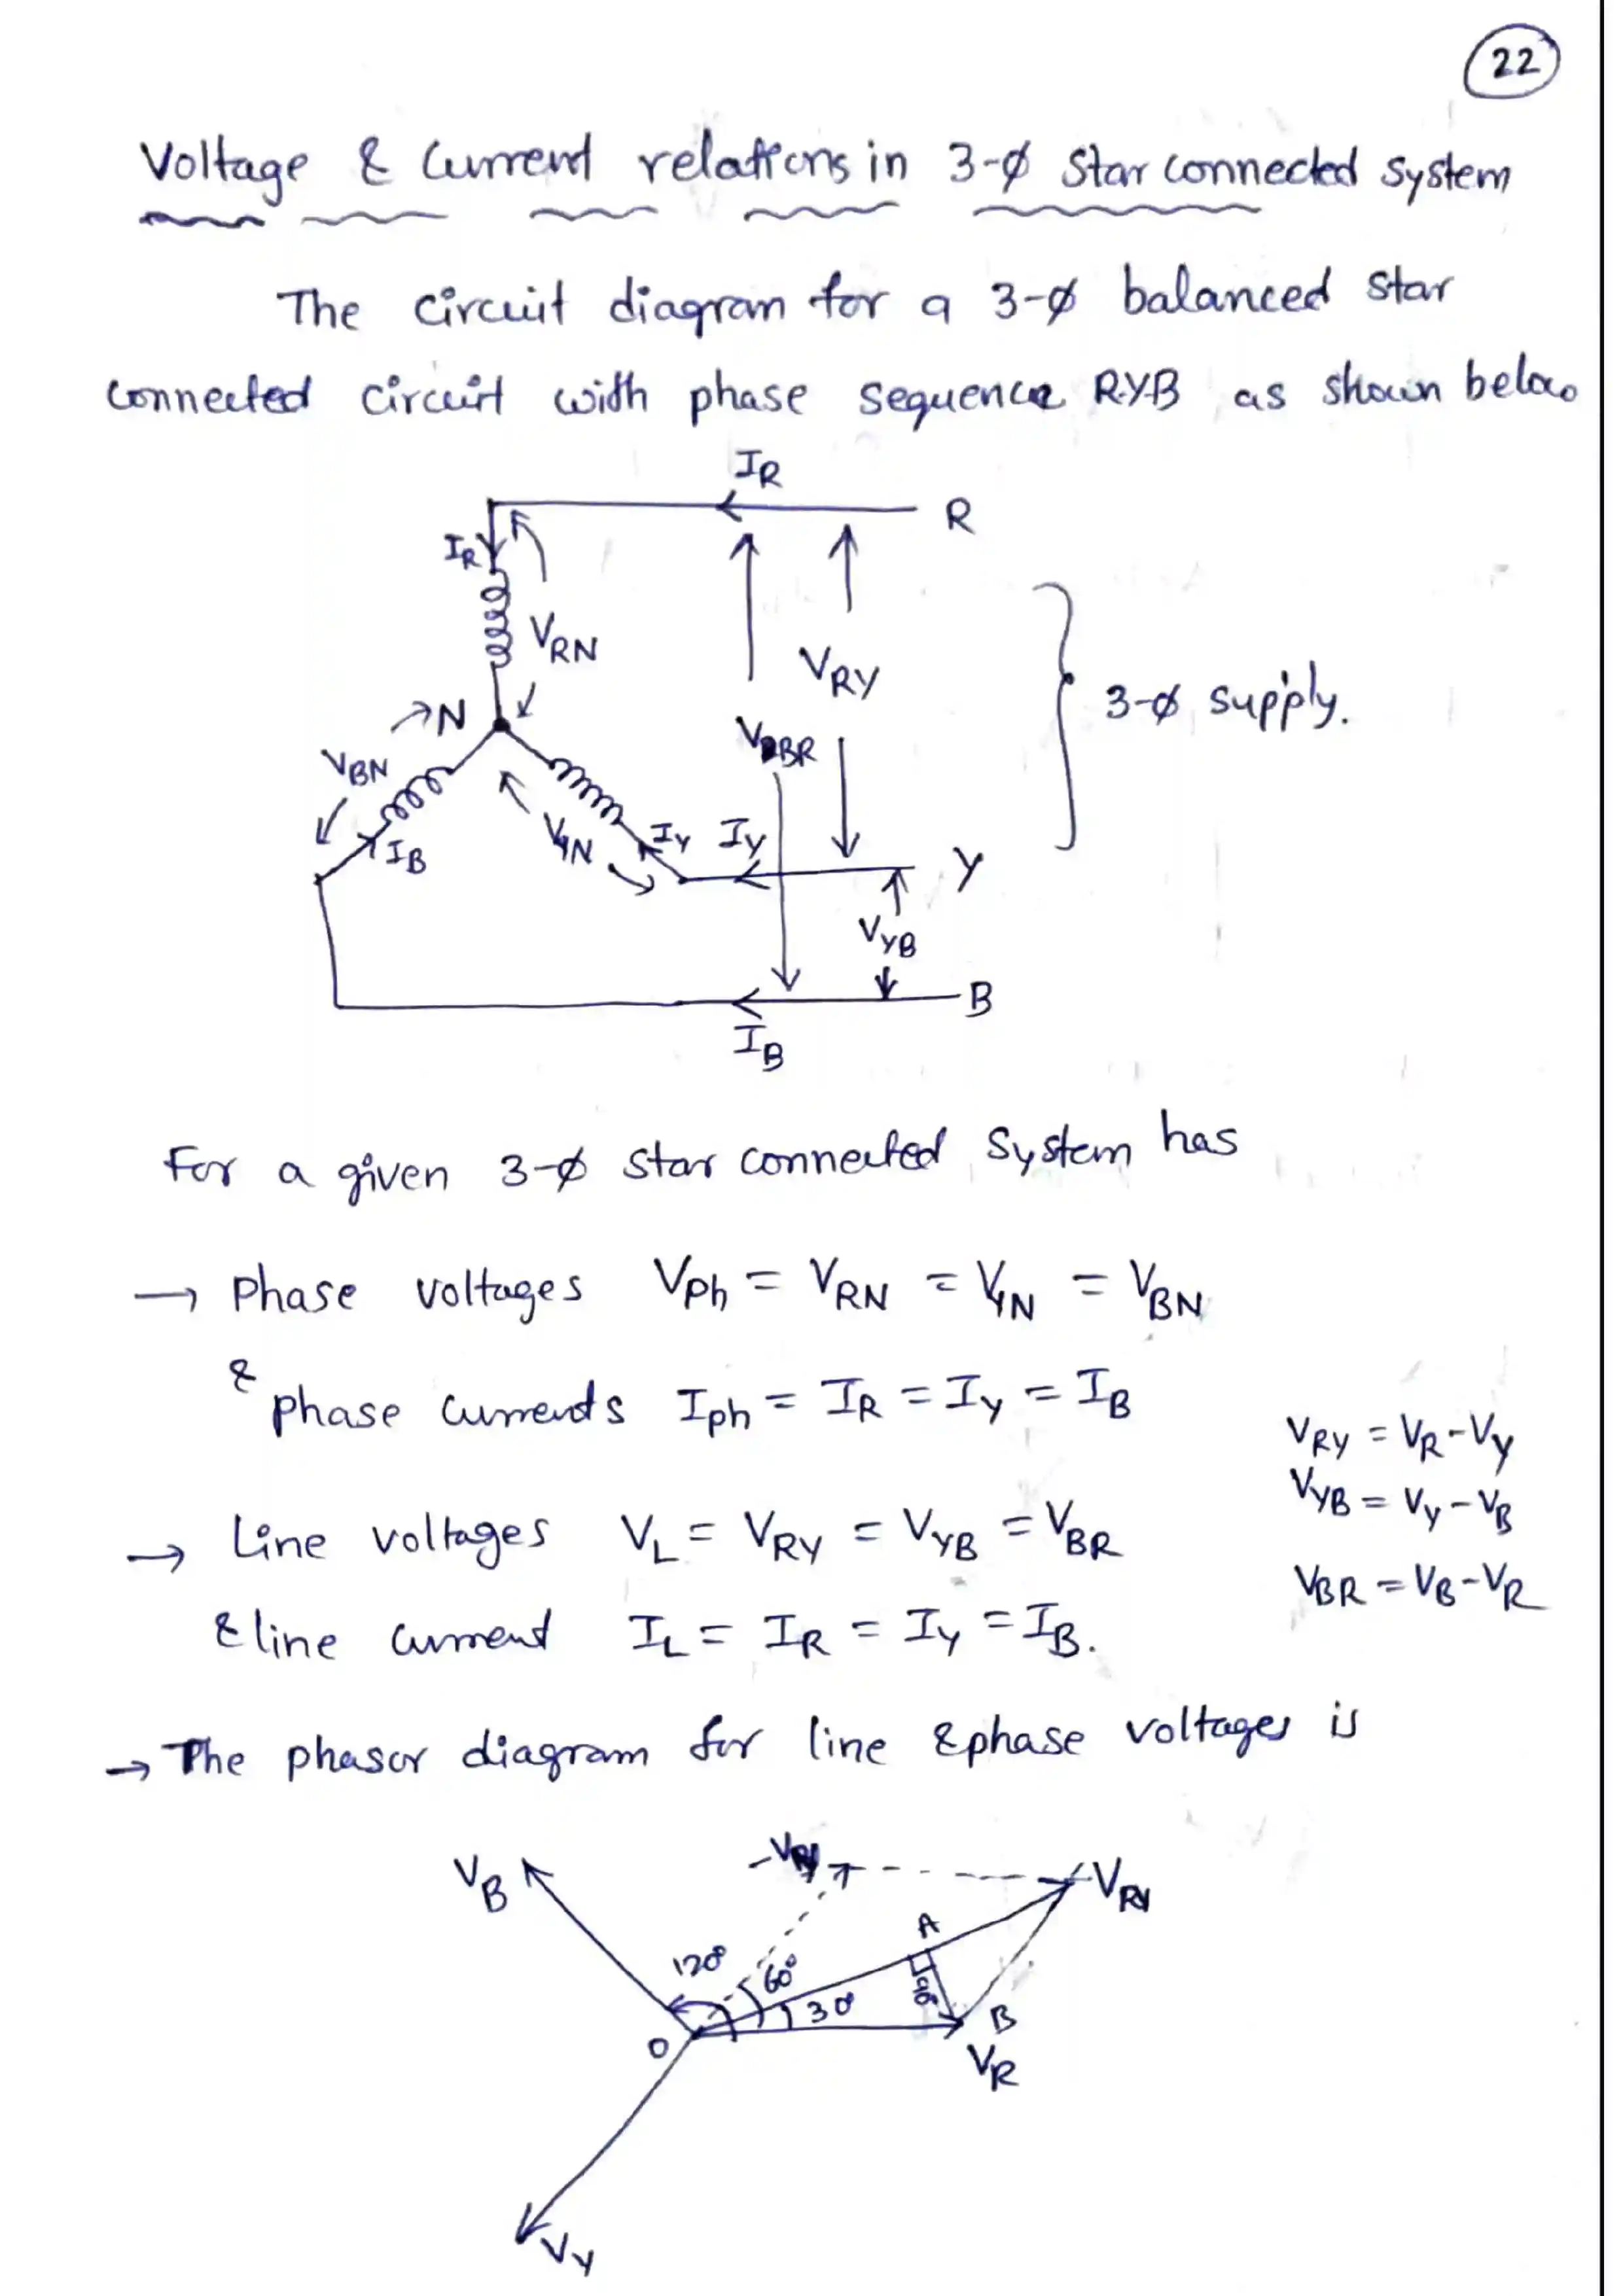 22
Voltage & Current relations in 3-ø Star connected system
The circuit diagram for a 3-ø balanced star
connected circuit with phase sequence RYB as shown below
I_R
R
I_R
V_RN
V_RY
N
3-ø supply.
V_BR
V_BN
I_Y I_Y
V_YN
I_B
Y
V_YB
B
I_B
For a given 3-ø star connected system has
→ Phase voltages V_Ph = V_RN = V_YN = V_BN
& phase currents I_ph = I_R = I_Y = I_B
V_RY = V_R - V_Y
V_YB = V_Y - V_B
→ Line voltages V_L = V_RY = V_YB = V_BR
V_BR = V_B - V_R
& line current I_L = I_R = I_Y = I_B.
→ The phasor diagram for line & phase voltages is
V_B
V_RY
A
120°
60°
30°
90°
B
O
V_R
V_Y